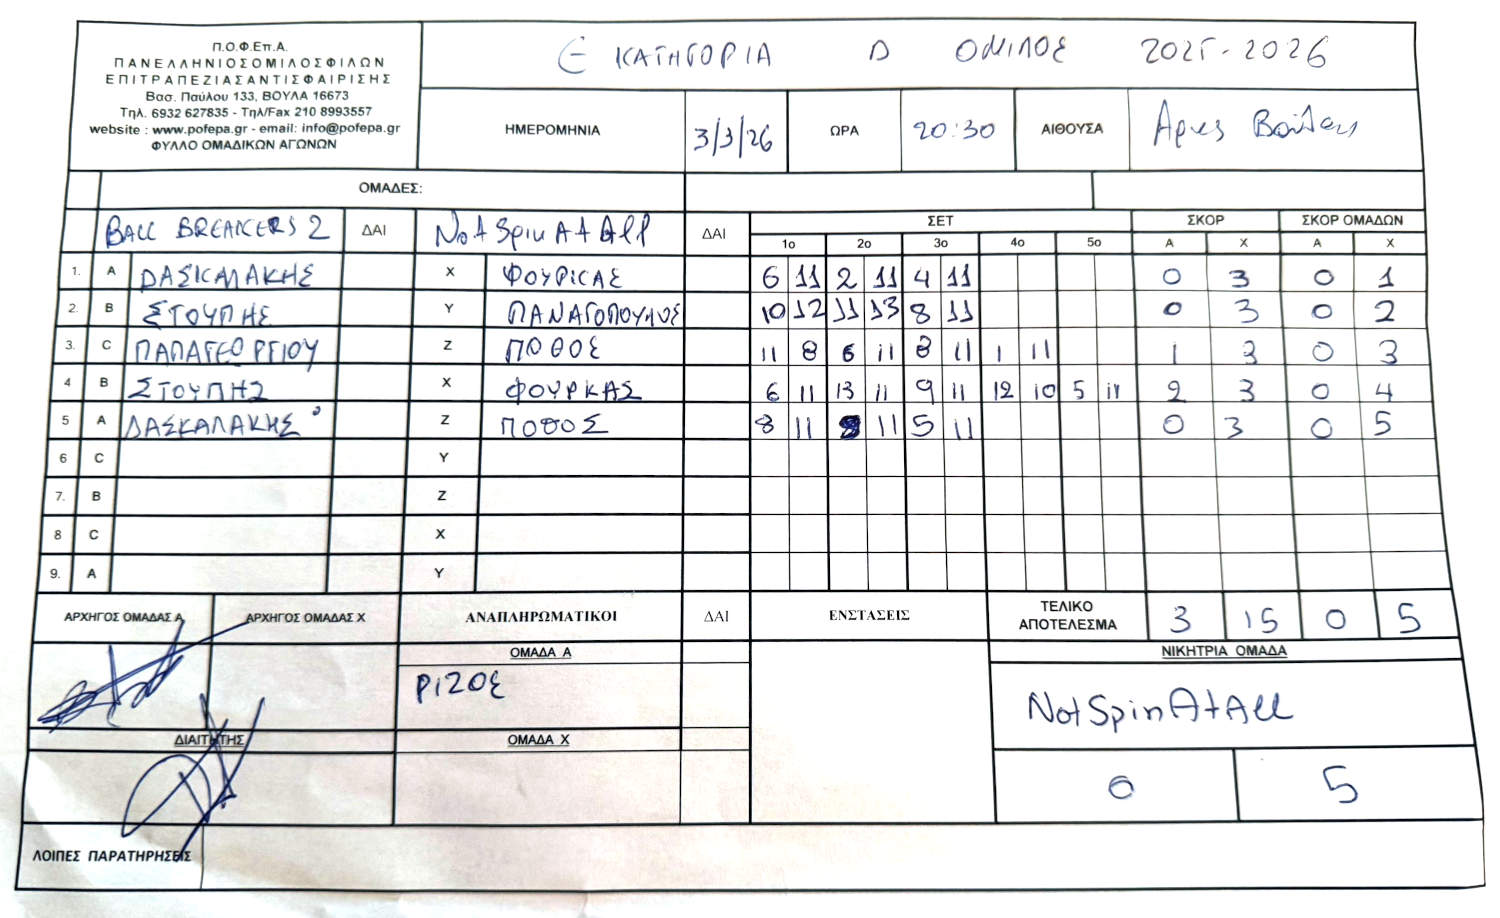 Π.Ο.Φ.Επ.Α.
ΠΑΝΕΛΛΗΝΙΟΣΟΜΙΛΟΣΦΙΛΩΝ
ΕΠΙΤΡΑΠΕΖΙΑΣΑΝΤΙΣΦΑΙΡΙΣΗΣ
Βασ. Παύλου 133, ΒΟΥΛΑ 16673
Τηλ. 6932 627835 - Τηλ/Fax 210 8993557
website : www.pofepa.gr - email: info@pofepa.gr
ΦΥΛΛΟ ΟΜΑΔΙΚΩΝ ΑΓΩΝΩΝ
Ε ΚΑΤΗΓΟΡΙΑ D ΟΜΙΛΟΣ 2025-2026
ΗΜΕΡΟΜΗΝΙΑ 3/3/26 ΩΡΑ 20:30 ΑΙΘΟΥΣΑ Αρης Βούλας
ΟΜΑΔΕΣ:
BALL BREAKERS 2 ΔΑΙ NotSpinAtAll ΔΑΙ ΣΕΤ ΣΚΟΡ ΣΚΟΡ ΟΜΑΔΩΝ
1ο 2ο 3ο 4ο 5ο Α Χ Α Χ
1. Α ΔΑΣΚΑΛΑΚΗΣ Χ ΦΟΥΡΚΑΣ 6 11 2 11 4 11 0 3 0 1
2. Β ΣΤΟΥΠΗΣ Υ ΠΑΝΑΓΟΠΟΥΛΟΣ 10 12 11 13 8 11 0 3 0 2
3. C ΠΑΠΑΓΕΩΡΓΙΟΥ Ζ ΠΟΘΟΣ 11 8 6 11 8 11 1 11 1 3 0 3
4 Β ΣΤΟΥΠΗΣ Χ ΦΟΥΡΚΑΣ 6 11 13 11 9 11 12 10 5 11 2 3 0 4
5 Α ΔΑΣΚΑΛΑΚΗΣ Ζ ΠΟΘΟΣ 8 11 11 5 11 0 3 0 5
6 C Υ
7. Β Ζ
8 C Χ
9. Α Υ
ΑΡΧΗΓΟΣ ΟΜΑΔΑΣ Α ΑΡΧΗΓΟΣ ΟΜΑΔΑΣ Χ ΑΝΑΠΛΗΡΩΜΑΤΙΚΟΙ ΔΑΙ ΕΝΣΤΑΣΕΙΣ ΤΕΛΙΚΟ ΑΠΟΤΕΛΕΣΜΑ 3 15 0 5
ΟΜΑΔΑ Α ΝΙΚΗΤΡΙΑ ΟΜΑΔΑ
ΡΙΖΟΣ NotSpinAtAll
ΔΙΑΙΤΗΤΗΣ ΟΜΑΔΑ Χ
0 5
ΛΟΙΠΕΣ ΠΑΡΑΤΗΡΗΣΕΙΣ